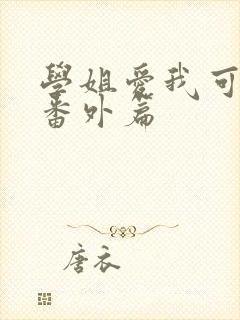 學姐愛我可
番外篇
唐衣